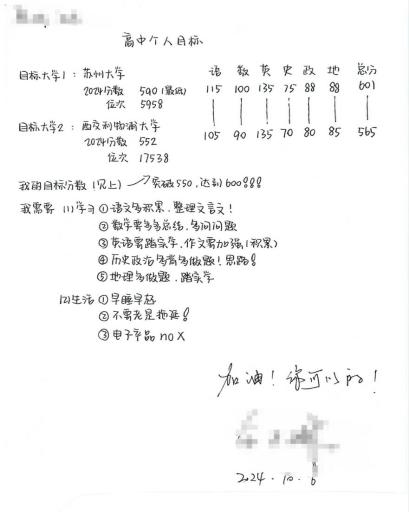 高中个人目标
目标大学1：苏州大学 语 数 英 史 政 地 总分
2024分数 590（最低） 115 100 135 75 88 88 601
位次 5958
目标大学2：西交利物浦大学 105 90 135 70 80 85 565
2024分数 552
位次 17538
我的目标分数（见上）→突破550，达到600!!!
我需要 (1)学习 ①语文多积累，整理文言文！
②数学要多多总结，多问问题
③英语要踏实学，作文要加强（积累）
④历史政治多背多做题！思路！
⑤地理多做题，踏实学
(2)生活 ①早睡早起
②不要老是拖延！
③电子产品 no X
加油！你可以的！
2024.10.6